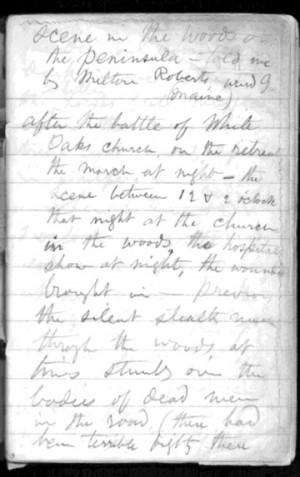 scene in the woods on
the peninsula – told me
by Milton Roberts, ward G
(Maine)
after the battle of White
Oaks church, on the retreat
the march at night – the
scene between 12 & 2 o'clock
that night at the church
in the woods, the hospital
show at night, the wounded
brought in – previous
the silent stealthy march
through the woods, at
times stumbling over the
bodies of dead men
in the road, (there had
been terrible fighting there